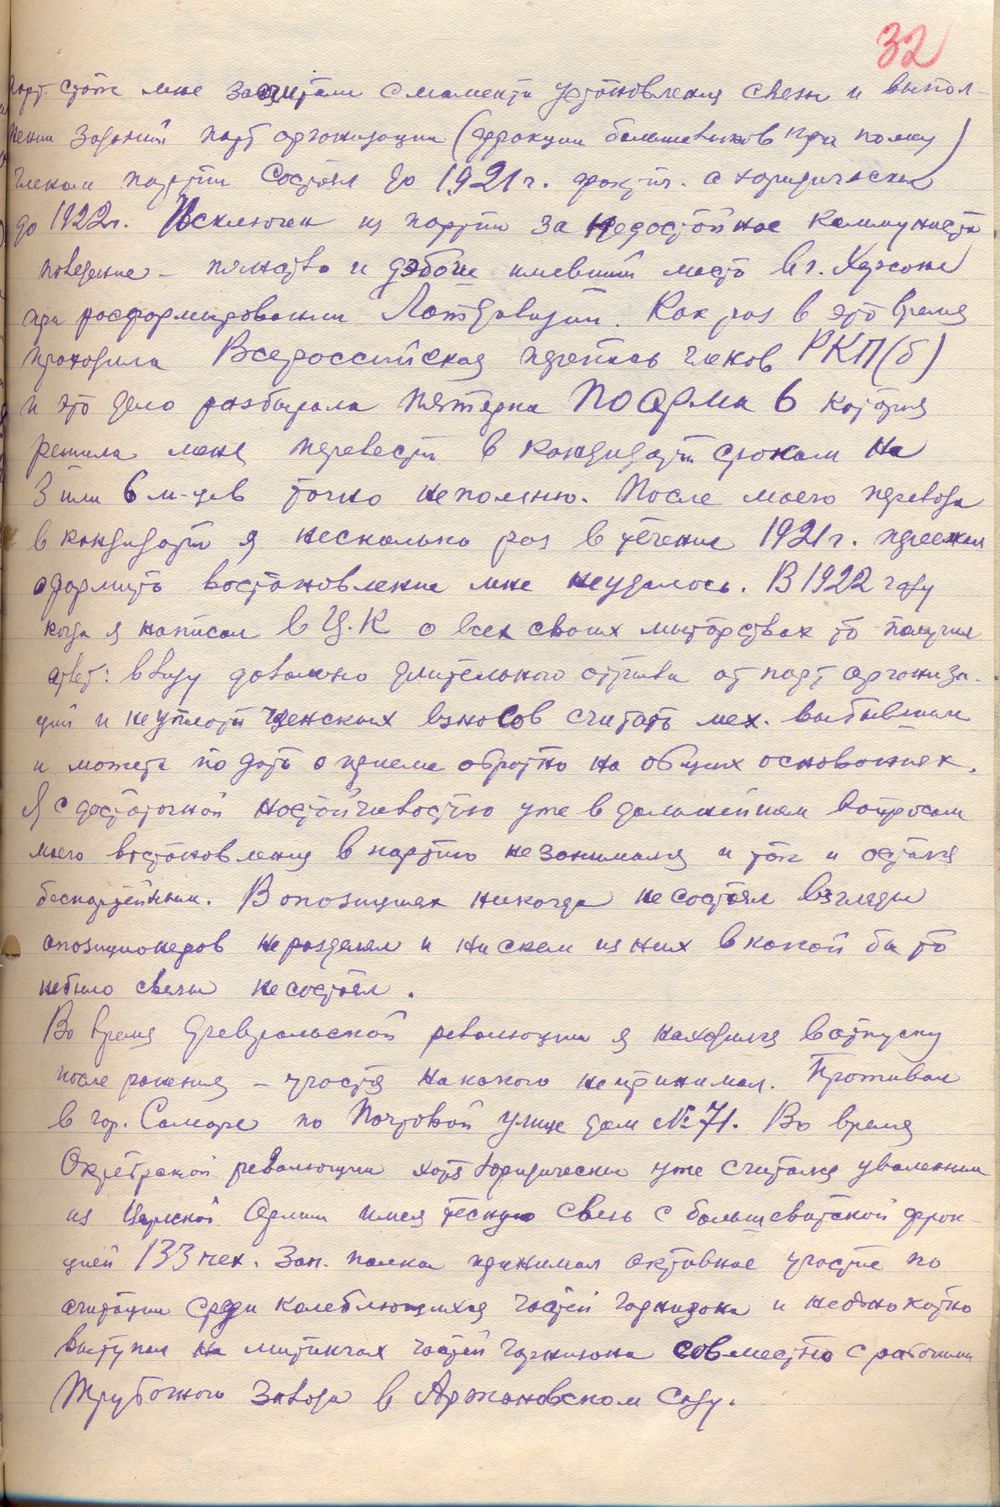 32
парт стаж мне засчитали с момента установления связи и выпол-
нении заданий парт организации (фракции большевиков при полку)
членом партии состоял до 1921 г. фактич. а юридически
до 1922 г. Исключен из партии за недостойное коммуниста
поведение – пьянство и дебоше имевший место в г. Херсоне
при расформировании Латдивизии. Как раз в это время
проходила Всероссийская перепись членов РКП(б)
и это дело разбирала пятерка ПОарма 6 которая
решила меня перевести в кандидаты сроком на
3 или 6 м-цев точно непомню. После моего перевода
в кандидаты я несколько раз в течение 1921 г. переезжал
оформить востановление мне неудалось. В 1922 году
когда я написал в Ц.К о всех своих мытарствах то получил
ответ: ввиду довольно длительного отрыва от парт организа-
ций и неуплаты членских взносов считать мех. выбывшим
и можете подать о приеме обратно на общих основаниях.
Я с достаточной настойчивостью уже в дальнейшем вопросом
моего востановления в партию незанимался и так и остался
беспартейным. В опозициях никогда несостоял взгляды
опозиционеров неразделял и нискем из них в какой бы то
небыло связи несостоял.
Во время Февральской революции я находился в отпуску
после ранения – участя накакого непринимал. Проживал
в гор. Самаре по Почтовой улице дом № 71. Во время
Октябрской революции хотя юридически уже считался уволенным
из Царской Армии имея тесную связь с большевитской фрак-
цией 133 пех. Зап. полка принимал активное участие по
агитации среди колеблющихся частей гарнизона и неоднократно
выступал на митингах частей гарнизона совместно с рабочими
Трубочного завода в Аржановском саду.